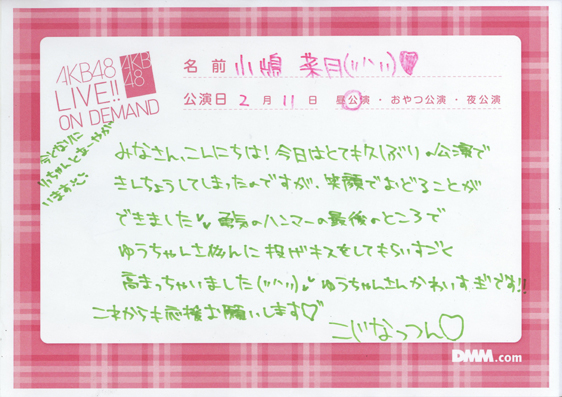 AKB48
LIVE!!
ON DEMAND
AKB
48
名前 小嶋 菜月(ﾊﾊ)♥
公演日 2月11日 昼公演・おやつ公演・夜公演
みなさん、こんにちは!今日はとても久しぶりの公演で
きんちょうしてしまったのですが、笑顔でおどることが
できました♡♡ 勇気のハンマーの最後のところで
ゆうちゃんさんに投げキスをしてもらいすごく
高まっちゃいました ♡ ゆうちゃんさんかわいすぎです!!
これからも応援お願いします♡
こじなっつん♡
DMM.com